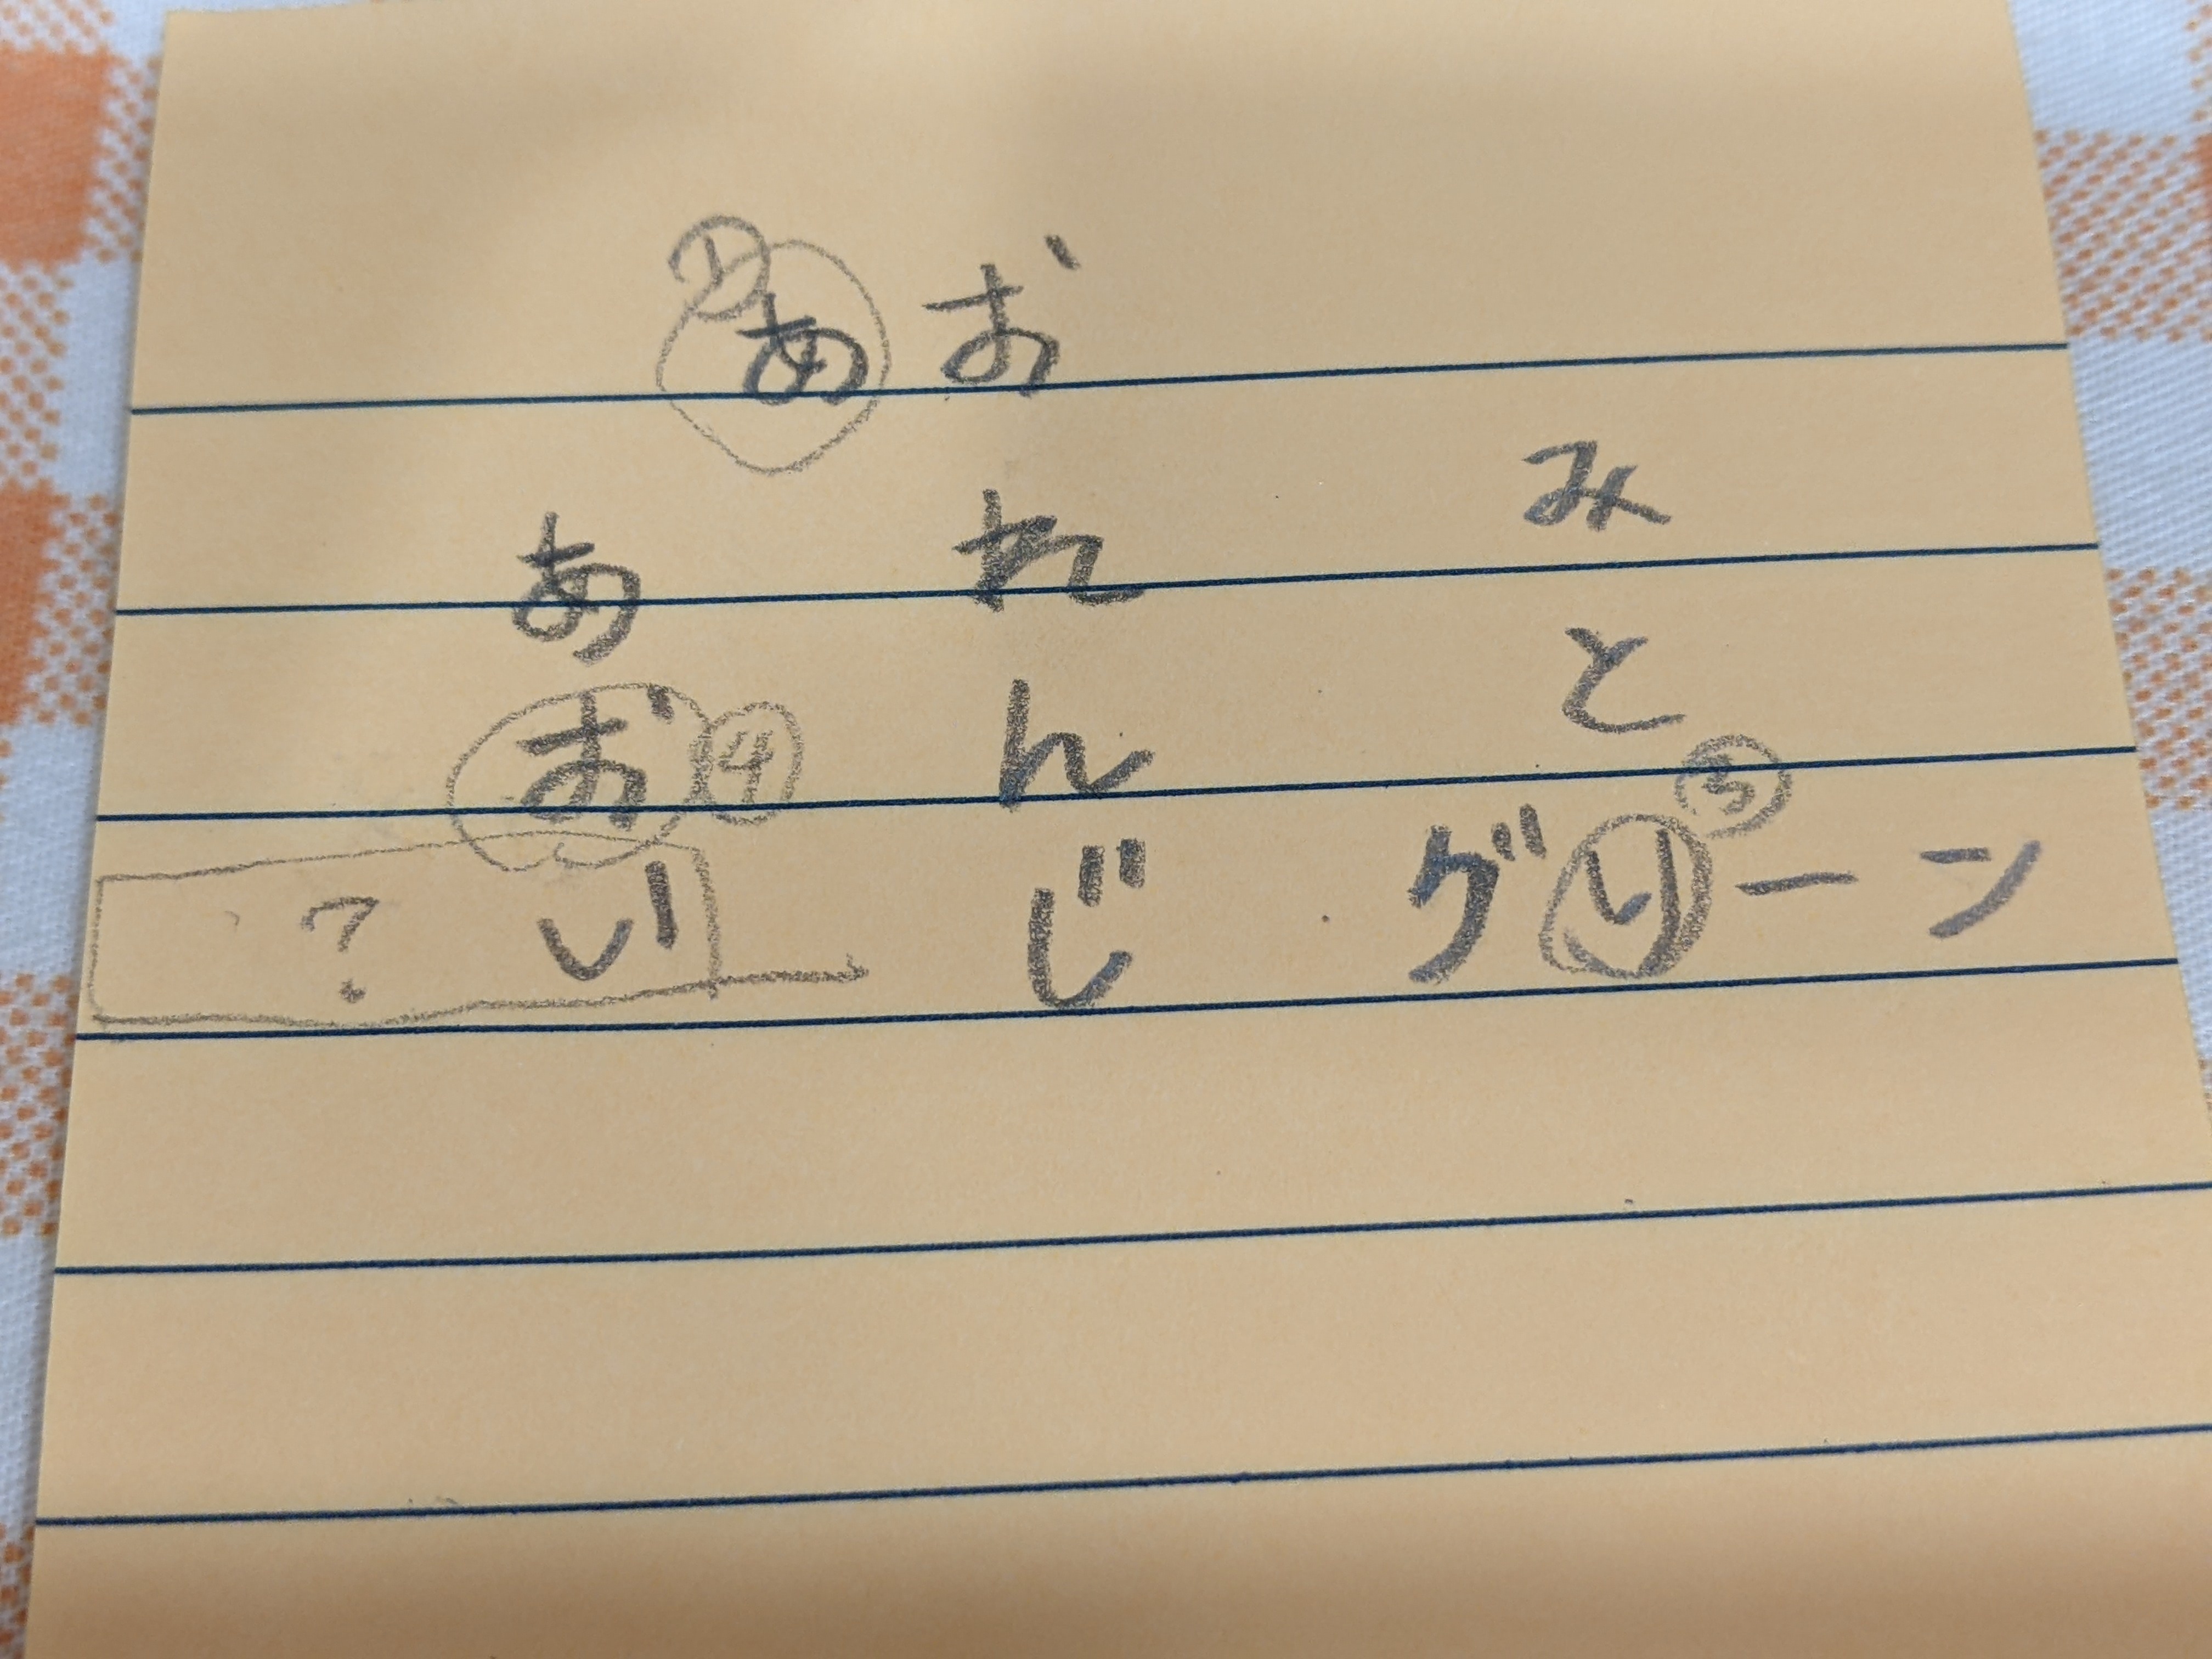 ① あ お
あ れ み
お ④ ん と
? い じ グ リ ③ ー ン